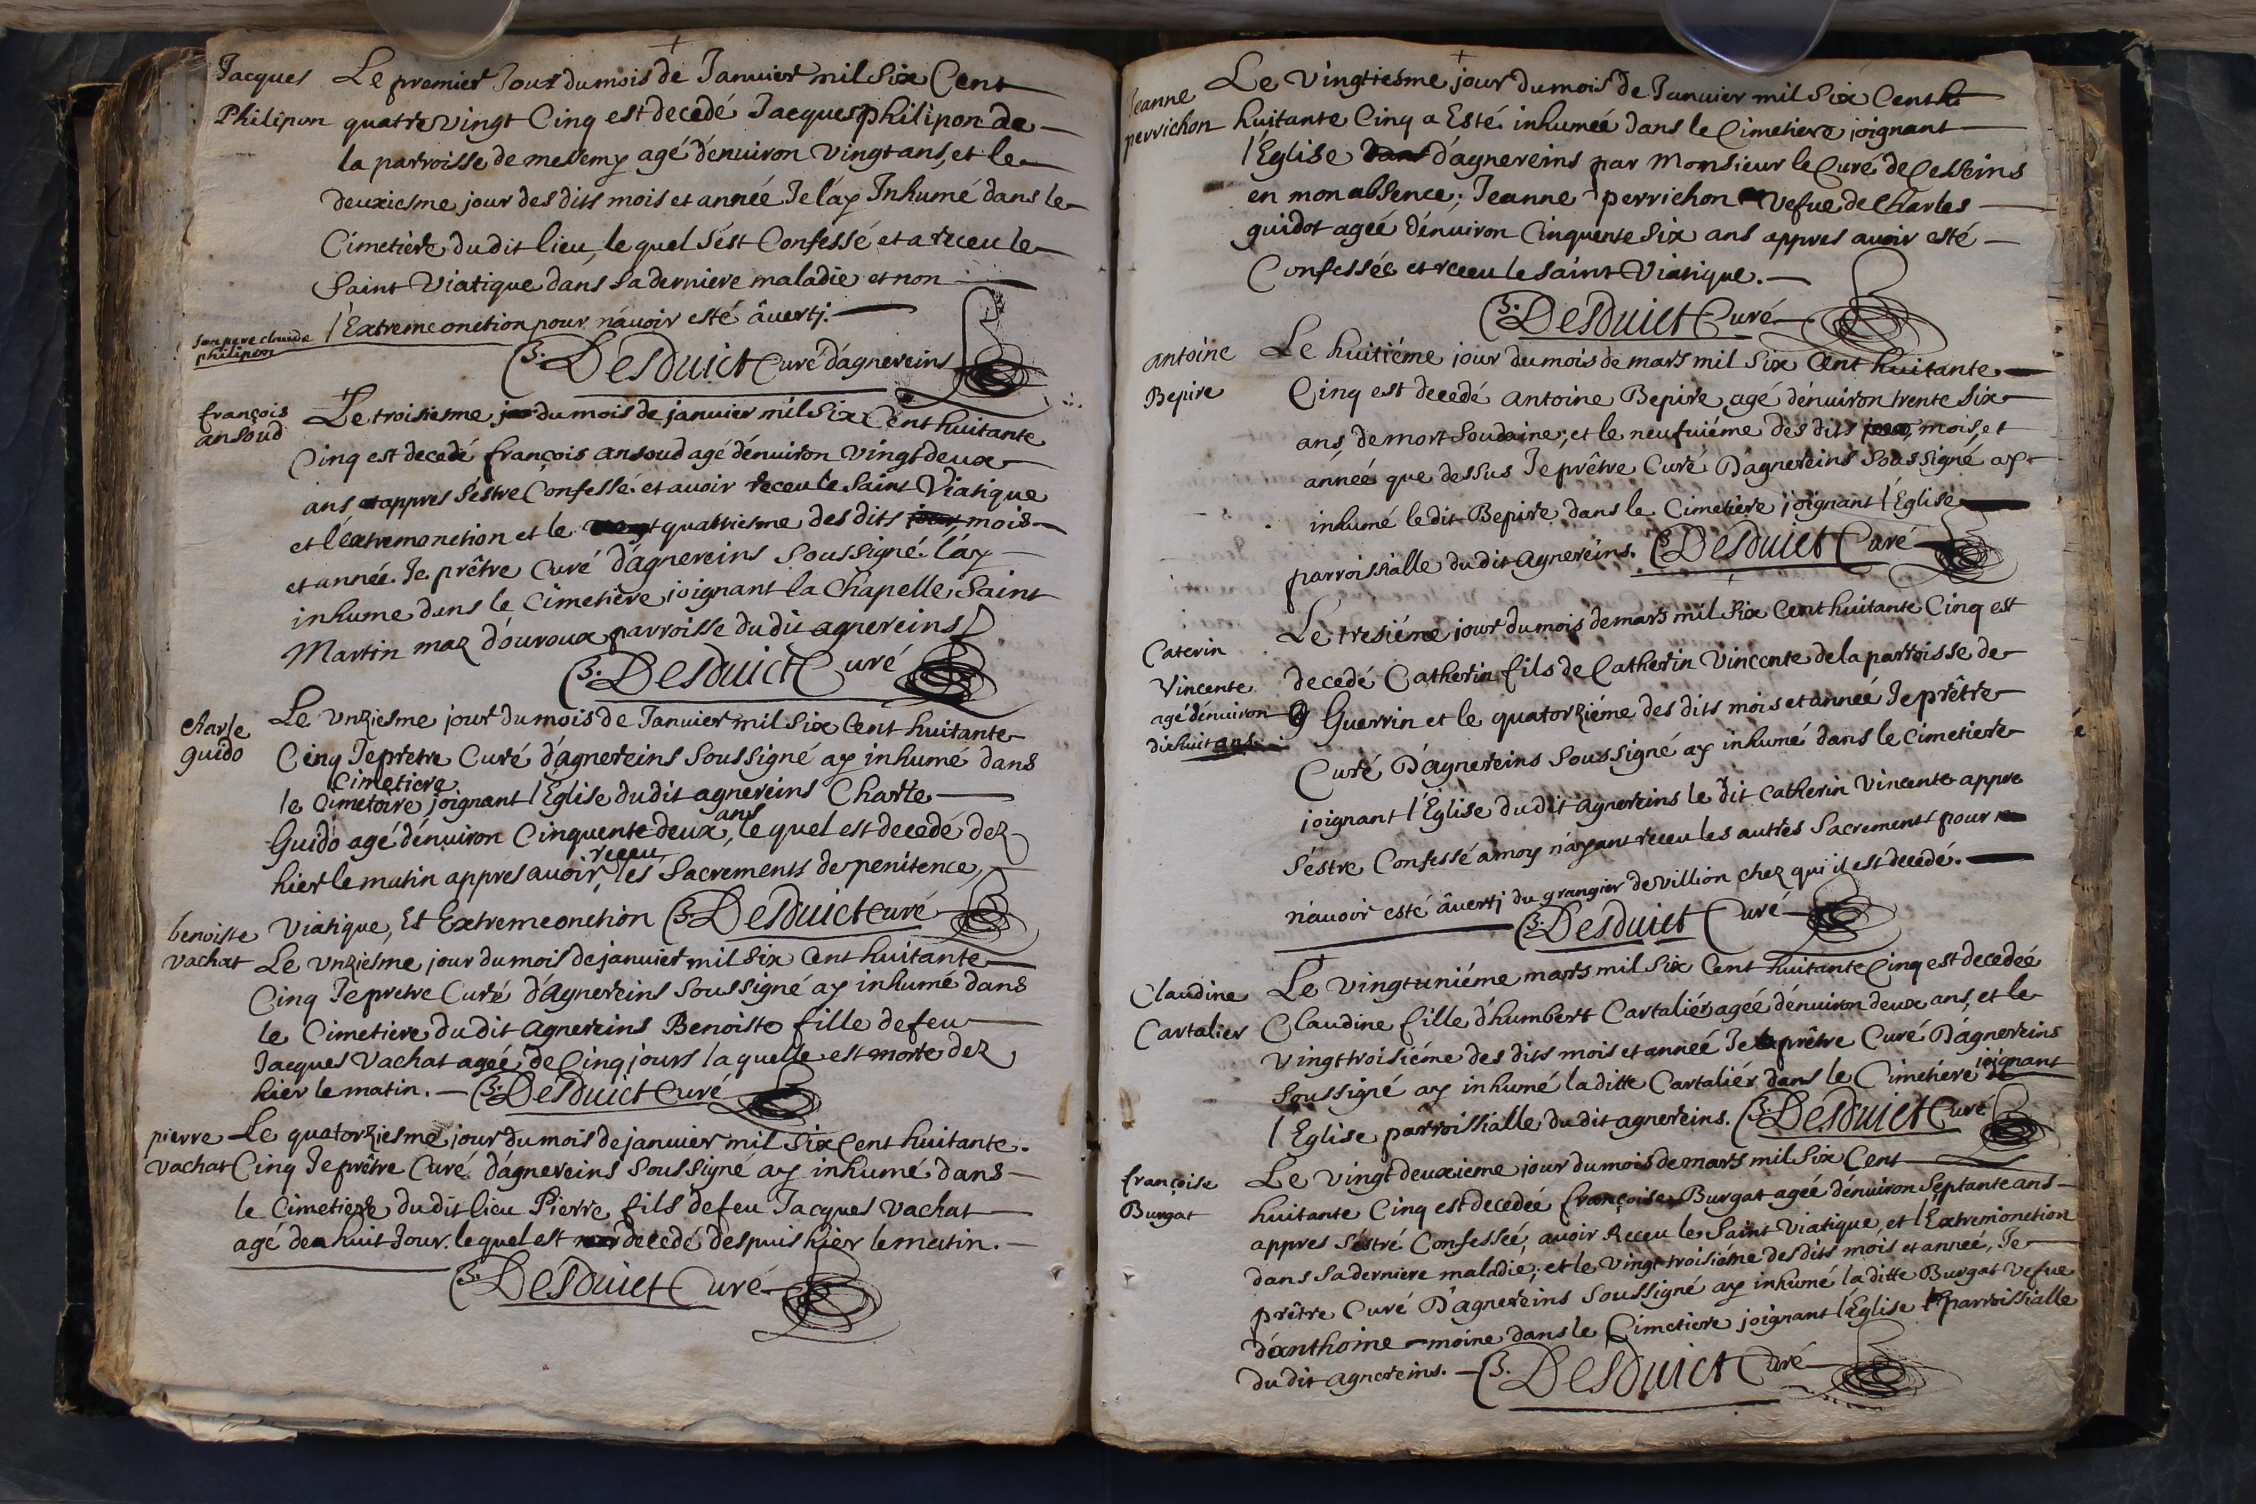 Jacques
Philipon
Le premier Jour du mois de Januier mil Six Cent
quatre vingt Cinq est decedé Jacques philipon de
la parroisse de meSemy agé dénuiron vingt ans, et le
deuxiesme jour des dits mois et année Je l'ay Inhumé dans le
Cimetiere du dit lieu, le quel S'est Confessé et a receu le
Saint Viatique dans Sa derniere maladie et non
l'Extremeonction pour n'auoir esté âuerti.
Son pere claude
philipon
B. Desduict Curé d'agnereins
françois
ansoud
Le troisiesme du mois de januier mil Six Cent huitante
Cinq est decedé françois ansoud agé dénuiron vingt deux
ans appres Sestre Confessé et auoir receu le Saint Viatique
et l'extremonction et le quattriesme des dits mois
et année. Je prêtre Curé d'agnereins Soussigné l'ay
inhume dans le Cimetiere joignant la Chapelle Saint
Martin maz d'ouroux parroisse du dit agnereins
B. Desduict Curé
charle
guido
Le Unziesme jour du mois de Januier mil Six Cent huitante
Cinq Je prêtre Curé d'agnereins Soussigné ay inhumé dans
Cimetiere
le Cimetoire joignant l'Eglise du dit agnereins Charle
Guido agé dénuiron Cinquente deux ans, le quel est decedé dez
hier le matin appres auoir receu les Sacrements de penitence,
Viatique, Et Extremeonction B. Desduict Curé
benoiste
vachat
Le Unziesme jour du mois de januier mil Six Cent huitante
Cinq Je pretre Curé d'Agnereins Soussigné ay inhumé dans
le Cimetiere du dit Agnereins Benoiste fille de feu
Jacques Vachat ageé de Cinq jours la quelle est morte dez
hier le matin. B. Desduict Curé
pierre
vachat
Le quatorziesme jour du mois de januier mil Six Cent huitante
Cinq Je prêtre Curé d'agnereins Soussigné ay inhumé dans
le Cimetiere du dit lieu Pierre fils de feu Jacques Vachat
agé de huit Jour. le quel est decedé despuis hier le matin.
B. Desduict Curé
Jeanne
perrichon
Le Vingtiesme jour du mois de Januier mil Six Cent
huitante Cinq a Esté inhumeé dans le Cimetiere joignant
l'Eglise d'agnereins par Monsieur le Curé de Cesseins
en mon absence; Jeanne perrichon Vefue de Charles
guidot ageé dénuiron Cinquente Six ans appres auoir esté
Confesséé et receu le Saint Viatique.
B. Desduict Curé
antoine
Bepire
Le huitiéme jour du mois de mars mil Six Cent huitante
Cinq est decedé antoine Bepire, agé dénuiron trente Six
ans, de mort Soudaine; et le neufuiéme des dits mois, et
anneé que dessus Je prêtre Curé D'agnereins Soussigné ay
inhumé le dit Bepire dans le Cimetiere joignant l'Eglise
parroissialle du dit agnereins. B. Desduict Curé
Caterin
Vincente
agé dénuiron
dix huit ans
Le tresiéme jour du mois de mars mil Six Cent huitante Cinq est
decedé Catherin fils de Catherin Vincente de la parroisse de
Guerrin et le quatorziéme des dits mois et anneé Je prêtre
Curé D'agnereins Soussigné ay inhumé dans le Cimetiere
joignant l'Eglise du dit agnereins le dit Catherin Vincente appre
S'estre Confessé a moy n'ayant receu les autres Sacrements pour
n'auoir esté âuerti du grangier de villion chez qui il est decedé.
B. Desduict Curé
Claudine
Cartalier
Le Vingt uniéme mars mil Six Cent huitante Cinq est decedeé
Claudine fille d'humbert Cartalier ageé dénuiron deux ans, et le
Vingt troisiéme des dits mois et anneé Je prêtre Curé D'agnereins
Soussigné ay inhumé la ditte Cartalier dans le Cimetiere joignant
l'Eglise parroissialle du dit agnereins. B. Desduict Curé
françoise
Burgat
Le Vingt deuxieme jour du mois de mars mil Six Cent
huitante Cinq est decedeé françoise Burgat ageé dénuiron Septante ans
appres S'estré Confesseé, auoir Receu le Saint Viatique, et l'Extremonction
dans Sa derniere maladie; et le Vingt troisiéme des dits mois et anneé, Je
prêtre Curé D'agnereins Soussigné ay inhumé la ditte Burgat Vefue
d'anthoine moine dans le Cimetiere joignant l'Eglise parroissialle
du dit agnereins. B. Desduict Curé